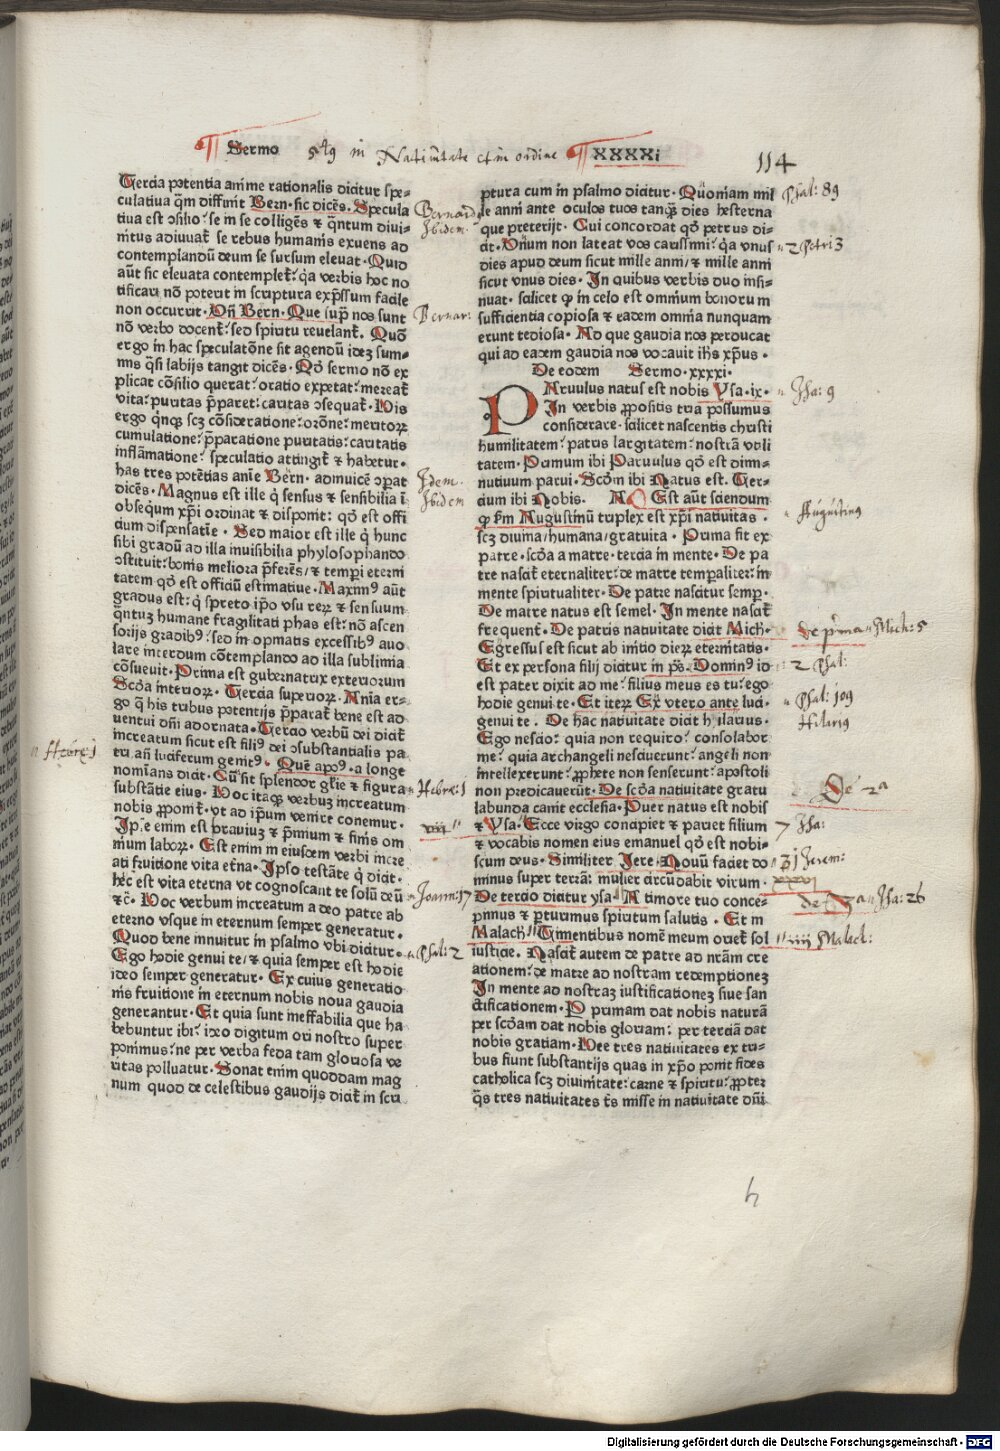 Sermo 5tus in Natiuitate etiam ordine XXXXi 114
Tercia potentia anime rationalis dicitur spe=
culatiua qm̄ diffinit Bern. sic dicēs. Specula
tiua est ɔsilio? se in se colligēs & q̄ntum diui=
nitus adiuuat̄ se rebus humanis exuens ad
contemplandū deum se sursum eleuat. Quid
aūt sic eleuata contemplet̄? q̇a verbis hoc no
tificari nō poterit in scriptura exp̄ssum facile
non occurrit. Vn̄ Bern. Que sup̄ nos sunt
nō verbo docent̄? sed spiritu reuelant̄. Quō
ergo in hac speculatōne sit agendū ideʒ sum=
mis q̇si labijs tangit dicēs. Qd̄ sermo nō ex
plicat cōsilio querat? oratio expetat? mereat̄
vita? puritas p̄paret? caritas ɔsequat̄. His
ergo q̇nqꝫ scʒ cōsideratione? orōne? meritorꝝ
cumulatione? p̄paratione puritatis? caritatis
inflāmatione? speculatio attingit̄ & habetur.
has tres potētias anīe Bern. adinuicē ɔparat
dicēs. Magnus est ille q̇ sensus & sensibilia ī
obsequm̄ xp̄i ordinat & disponit? qd̄ est offi
cium dispensatīe. Sed maior est ille q̇ hunc
sibi gradū ad illa inuisibilia phylosophando
ɔstituit? bonis meliora p̄ferēs/ & temp̄i eterni
tatem qd̄ est officiū estimatiue. Maximꝰ aūt
gradus est? q̇ spreto ip̄o vsu rerꝝ & sensuum
q̄ntuʒ humane fragilitati phas est? nō ascen
sorijs gradibꝰ? sed inopinatis excessibꝰ auo
lare interdum cōtemplando ad illa sublimia
cōsueuit. Prima est gubernatrix exteriorum
Scd̄a interiorꝝ. Tercia superiorꝝ. Anīa er=
go q̇ his tribus potentijs p̄parat̄ bene est ad
uentui dn̄i adornata. Tercio verbū dei dicit̄
increatum sicut est filiꝰ dei ɔsubstantialis pa
tri an̄ luciferum genitꝰ. Quē apoꝰ. a longe
nomīans dicit. Cū sit splendor gl̄ie & figura
substātie eius. Hoc itaqꝫ verbuʒ increatum
nobis ꝓponit̄. vt ad ip̄um venire conemur.
Ip̄e enim est brauiuʒ & p̄mium & finis om
nium laborꝝ. Est enim in eiusdem verbi incre
ati fruitione vita et̄na. Ipso testāte q̇ dicit.
hec est vita eterna vt cognoscant te solū deū
&c̄. Hoc verbum increatum a deo patre ab
eterno vsque in eternum semper generatur.
Quod bene innuitur in psalmo vbi dicitur.
Ego hodie genui te/ & quia semper est hodie
ideo semper generatur. Ex cuius generatio
nis fruitione in eternum nobis noua gaudia
generantur. Et quia sunt ineffabilia que ha
bebuntur ibi? ideo digitum ori nostro super
ponimus? ne per verba feda tam gloriosa ve
ritas polluatur. Sonat enim quoddam mag
num quod de celestibus gaudijs dicit̄ in scri
ptura cum in psalmo dicitur. Qūoniam mil
le anni ante oculos tuos tanqꝫ dies hesterna
que preterijt. Cui concordat qd̄ petrus di=
cit. Vnum non lateat vos carissimi? q̇a vnus
dies apud deum sicut mille anni/ & mille anni
sicut vnus dies. In quibus verbis duo insi=
nuat. scilicet ꝙ in celo est omnium bonorum
sufficientia copiosa & eadem omnia nunquam
erunt tediosa. Ad que gaudia nos perducat
qui ad eadem gaudia nos vocauit ihs xp̄us.
De eodem Sermo. xxxxi.
PAruulus natus est nobis Ysa. ix.
In verbis ꝓpositis tria possumus
considerare. scilicet nascentis christi
humilitatem? patris largitatem? nostrā vtili
tatem. Primum ibi Paruulus qd̄ est dimi=
nutiuum parui. Scd̄m ibi Natus est. Ter=
cium ibi Nobis. Est aūt sciendum
ꝙ sm̄ Augustinū triplex est xp̄i natiuitas.
scʒ diuina/ humana/ gratuita. Prima fit ex
patre. scd̄a a matre. tercia in mente. De pa
tre nascit̄ eternaliter? de matre temp̄aliter? in
mente spiritualiter. De patre nascitur semp̄.
De matre natus est semel. In mente nascit̄
frequent̄. De patris natiuitate dicit Mich.
Egressus est sicut ab initio dierꝝ eternitatis.
Et ex persona filij dicitur in ps̄. Dominꝰ id
est pater dixit ad me? filius meus es tu? ego
hodie genui te. Et iterꝝ Ex vtero ante luci.
genui te. De hac natiuitate dicit hilarius.
Ego nescio? quia non requiro? consolabor
me? quia archangeli nescierunt? angeli non
intellexerunt? ꝓphete non senserunt? apostoli
non predicauerūt. De scd̄a natiuitate gratu
labunda canit ecclesia. Puer natus est nobis
& Ysa. Ecce virgo concipiet & pariet filium
& vocabis nomen eius emanuel qd̄ est nobi=
scum deus. Similiter Jere. Nouū faciet do
minus super terrā? mulier circūdabit virum.
De tercio dicitur ysa. A timore tuo conce=
pimus & p̄turimus spiritum salutis. Et in
Malach Timentibus nomē meum oriet̄ sol
iusticie. Nascit̄ autem de patre ad nr̄am cre
ationem? de matre ad nostram redemptioneʒ
In mente ad nostraʒ iustificationeʒ siue san
ctificationem. Per primam dat nobis naturā
per scd̄am dat nobis gloriam? per terciā dat
nobis gratiam. Hee tres natiuitates ex tri=
bus fiunt substantijs quas in xp̄o ponit fides
catholica scʒ diuinitate? carne & spiritu? ꝓpter
q̄s tres natiuitates tr̄s misse in natiuitate dn̄i
Bernard
Ibidem
Bernar:
Idem
Ibidem
Hebre: 1
Hebre: 1
Joann: 17
Psal: 2
Psal: 89
2 Petri 3
Isa: 9
Augustinus
de prima Mich: 5
2 Psal:
Psal: 109
Hilarius
De 2a
7 Isa:
31 Jerem:
xxxi
de 3a Isa: 26
iiii Malach:
h
Digitalisierung gefördert durch die Deutsche Forschungsgemeinschaft - DFG